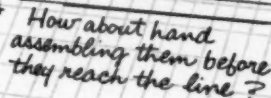 How about hand
assembling them before
they reach the line?